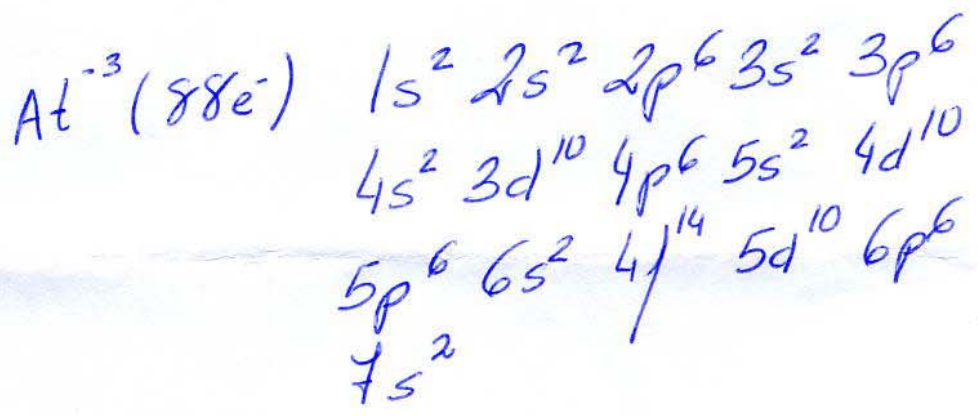 At⁻³ (88e⁻) 1s² 2s² 2p⁶ 3s² 3p⁶
4s² 3d¹⁰ 4p⁶ 5s² 4d¹⁰
5p⁶ 6s² 4f¹⁴ 5d¹⁰ 6p⁶
7s²